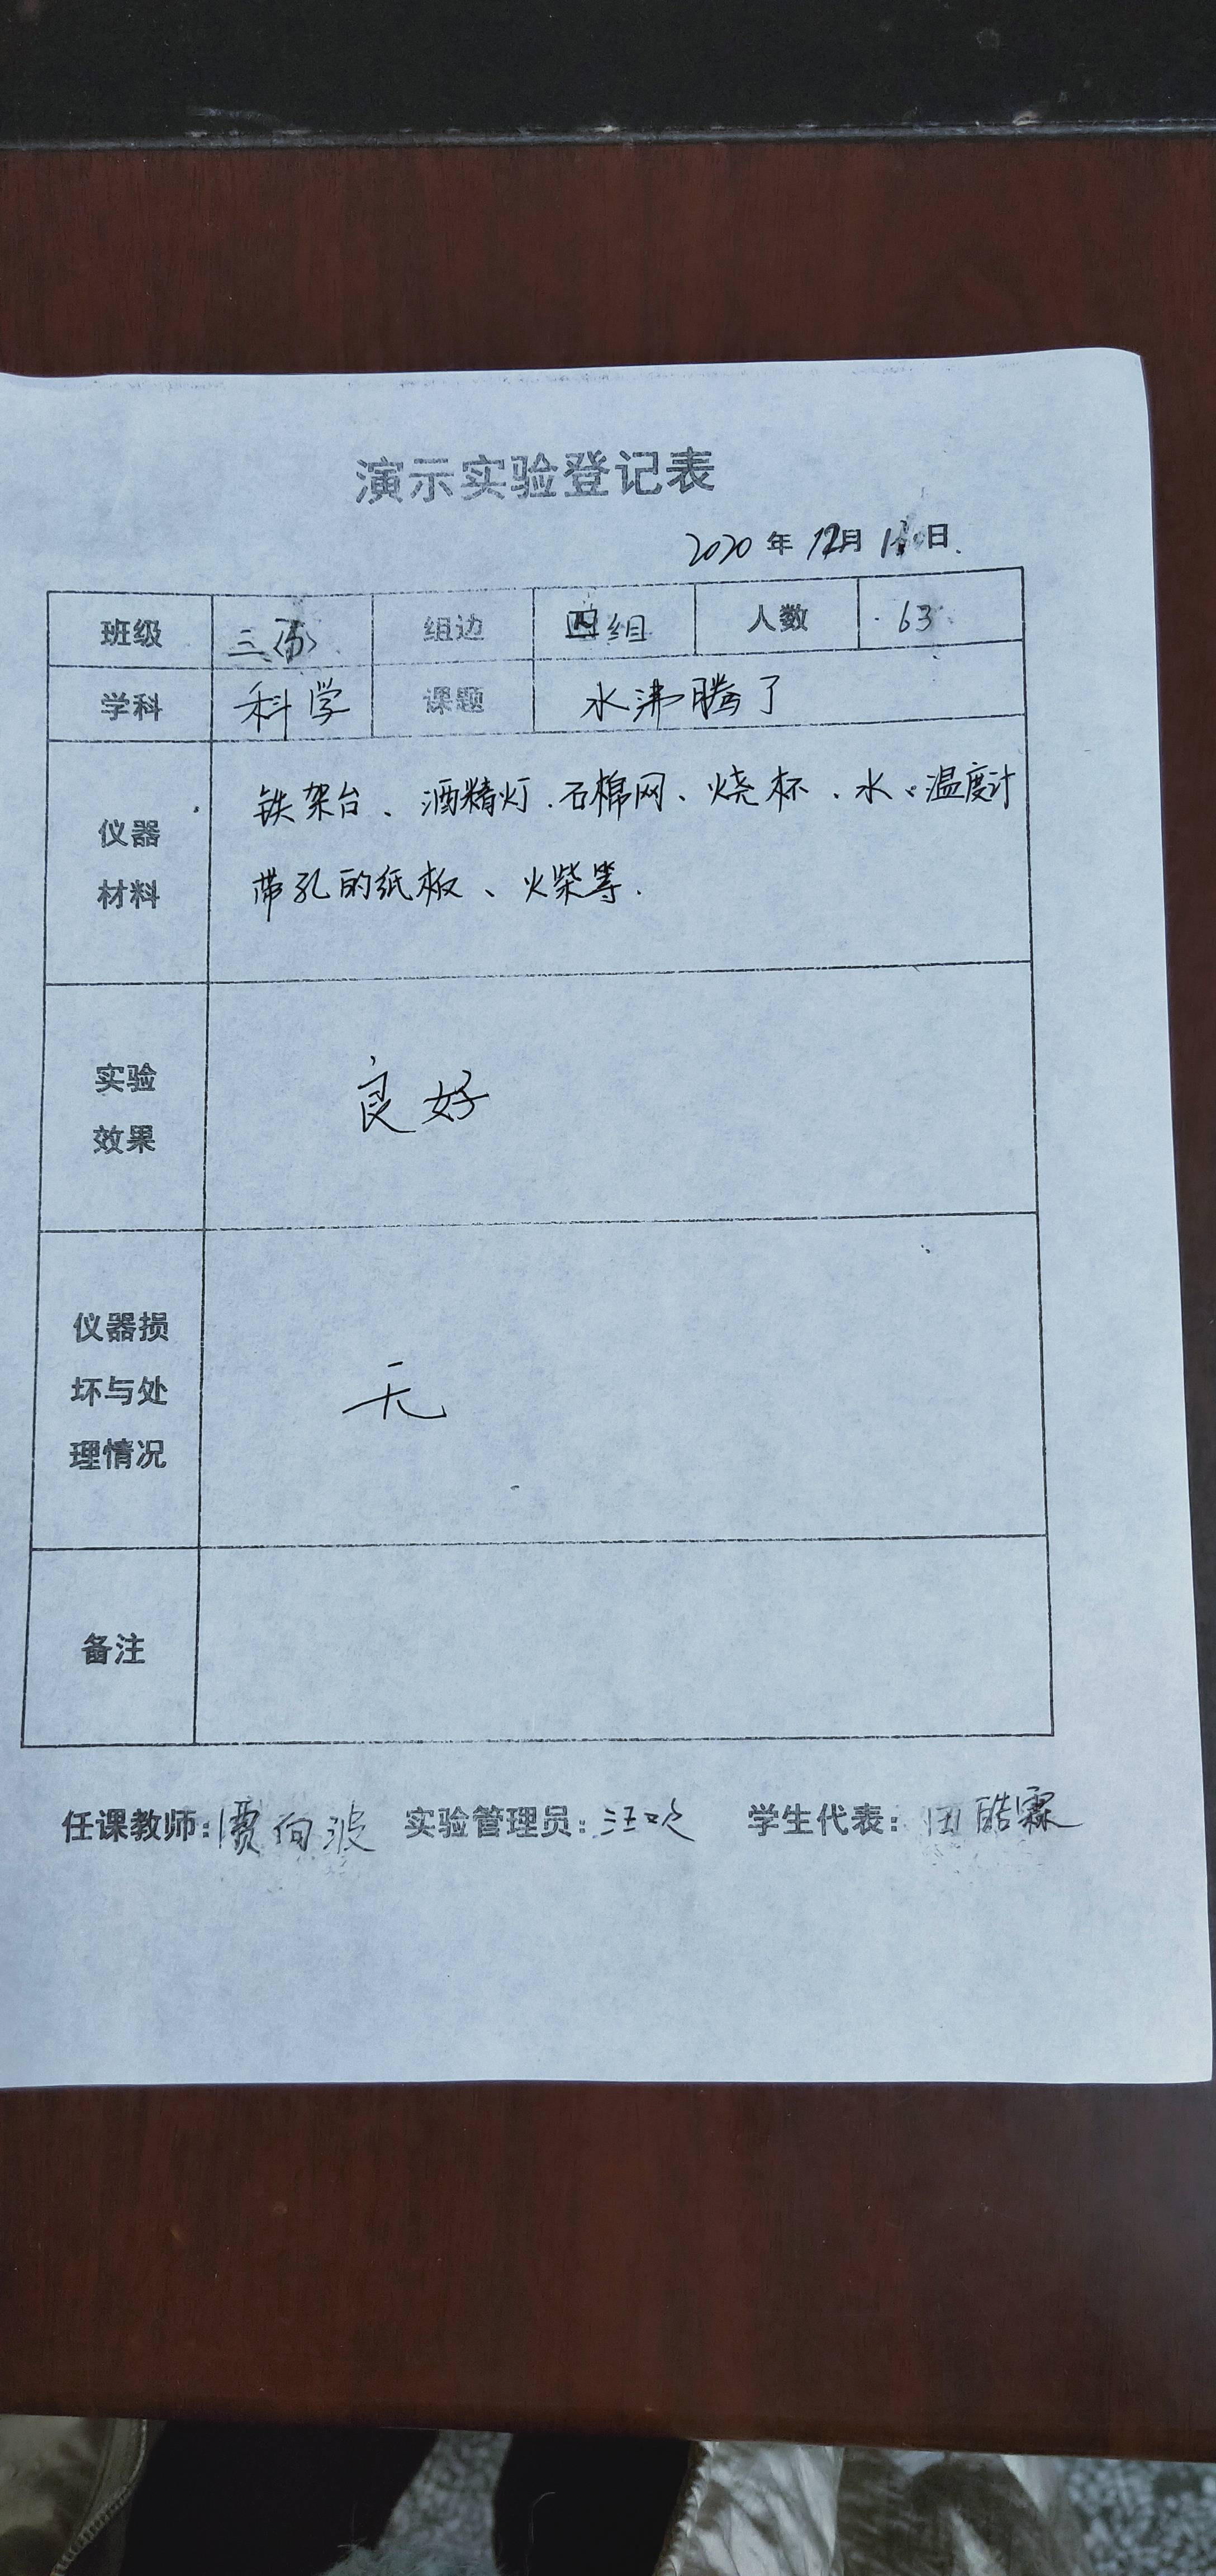 演示实验登记表
2020 年 12月 日
班级 三 组边 四组 人数 63
学科 科学 课题 水沸腾了
仪器材料 铁架台、酒精灯、石棉网、烧杯、水、温度计
带孔的纸板、火柴等.
实验效果 良好
仪器损坏与处理情况 无
备注
任课教师:贾向波 实验管理员: 学生代表:田皓霖